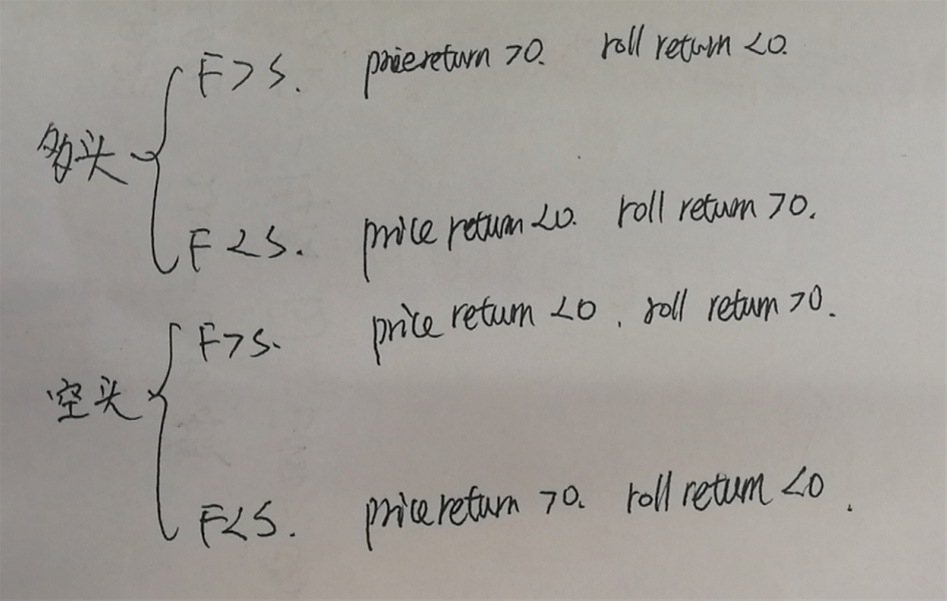 多头
F>S. price return >0. roll return <0.
F<S. price return <0. roll return >0.
空头
F>S. price return <0. roll return >0.
F<S. price return >0. roll return <0.